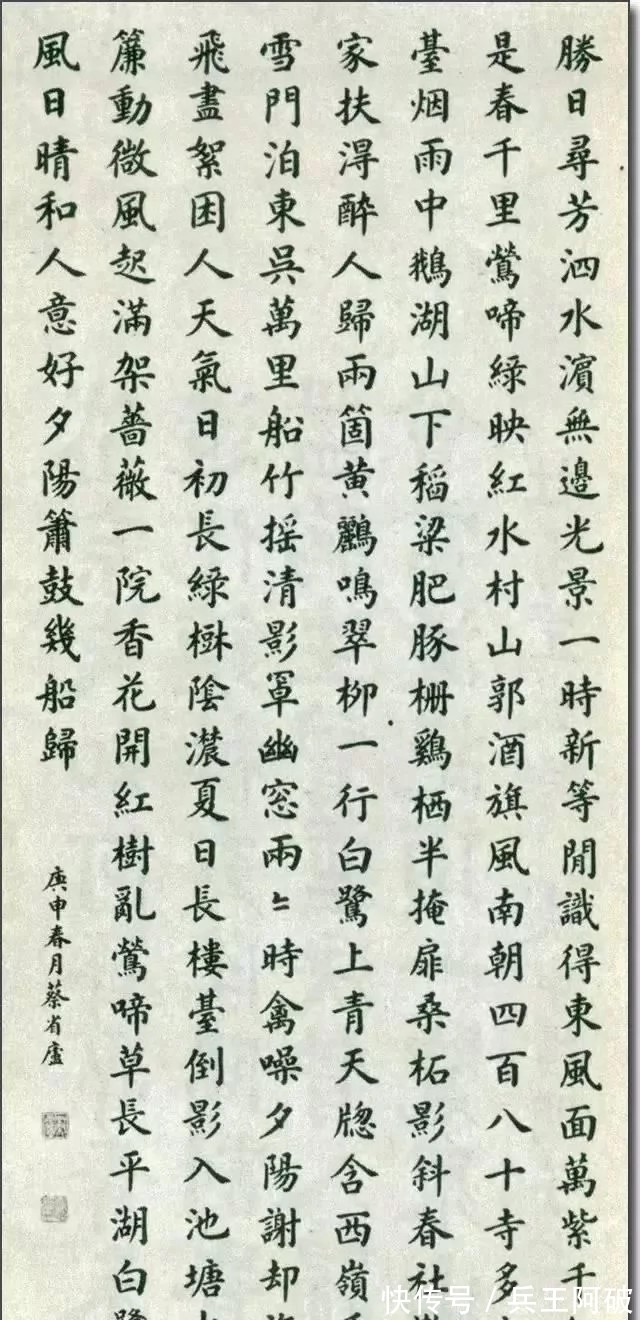 勝日尋芳泗水濱無邊光景一時新等閒識得東風面萬紫千
是春千里鶯啼緑映紅水村山郭酒旗風南朝四百八十寺多
臺烟雨中鵝湖山下稻粱肥豚栅鷄栖半掩扉桑柘影斜春社
家扶淂醉人歸兩箇黄鸝鳴翠柳一行白鷺上青天牕含西嶺
雪門泊東吳萬里船竹摇清影罩幽窓兩〻時禽噪夕陽謝却
飛盡絮困人天氣日初長緑樹陰濃夏日長樓臺倒影入池塘
簾動微風起滿架薔薇一院香花開紅樹亂鶯啼草長平湖白鷺
風日晴和人意好夕陽簫鼓幾船歸
庚申春月蔡省廬
快传号 / 兵王阿破